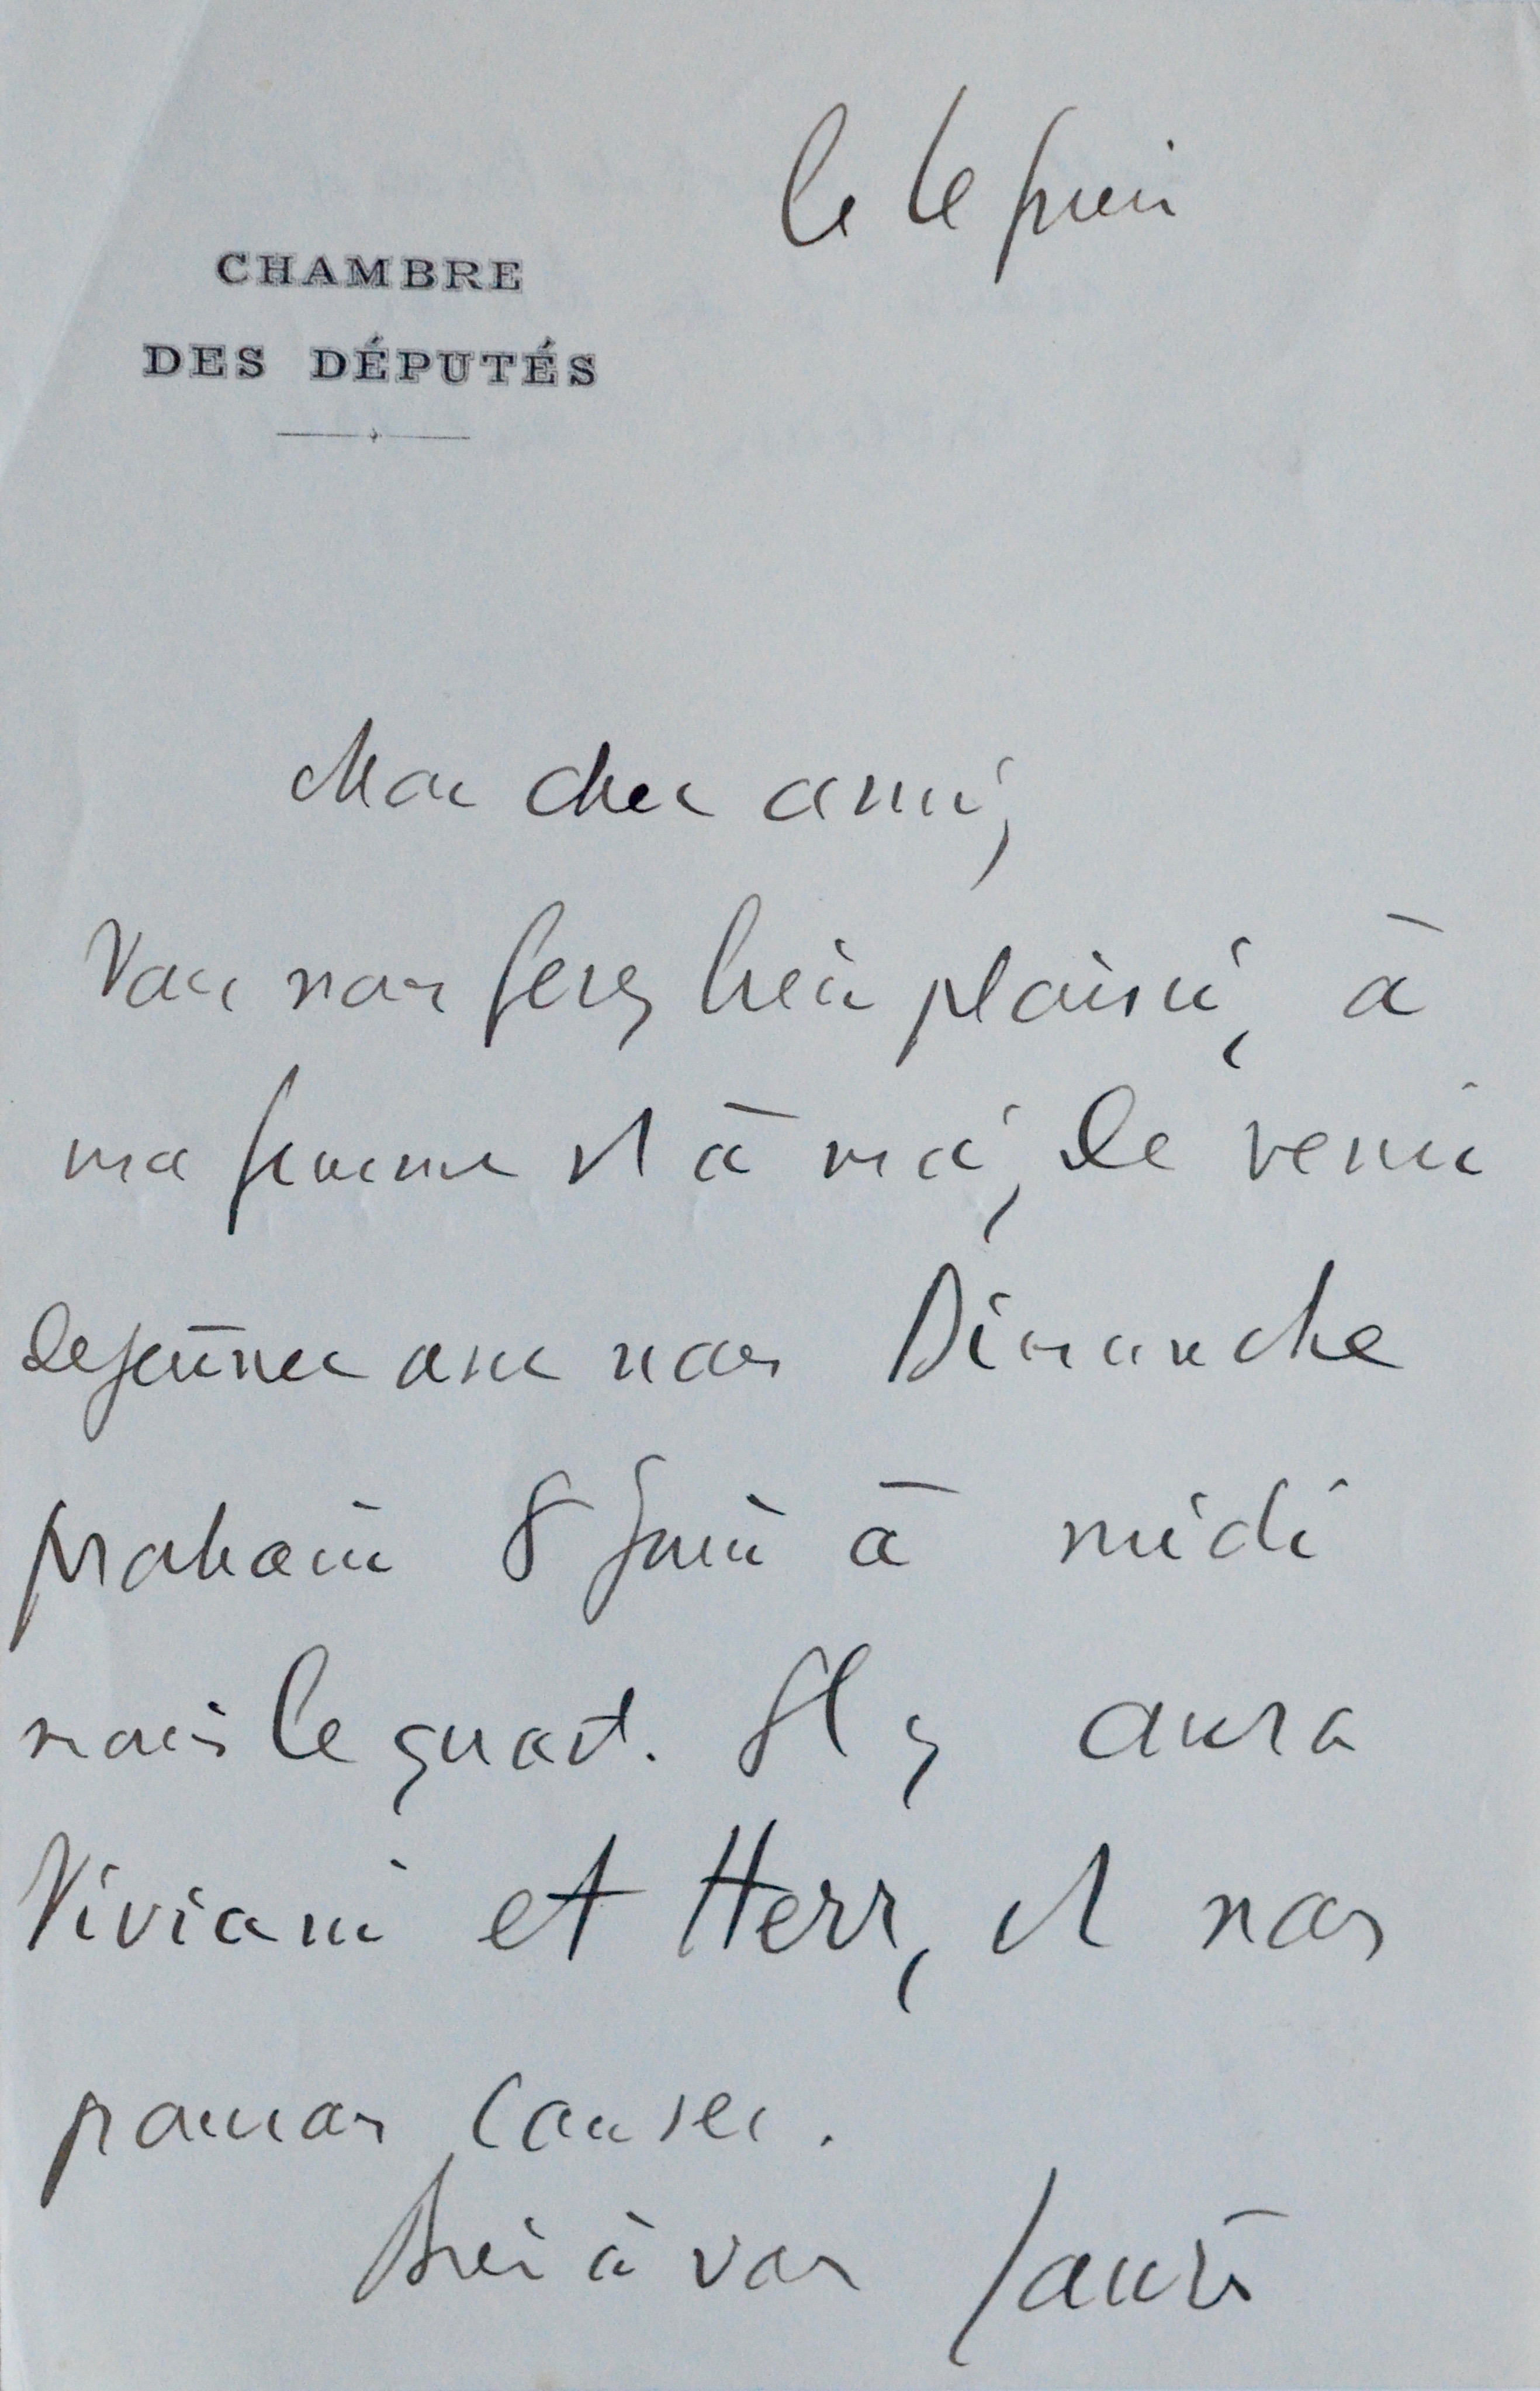 le 6 juin
CHAMBRE
DES DÉPUTÉS
Mon cher ami,
Vous nous ferez bien plaisir, à
ma femme et à moi, de venir
déjeuner avec nous Dimanche
prochain 8 Juin à midi
moins le quart. Il y aura
Viviani et Herr, et nous
pourrons causer.
Bien à vous Jaurès